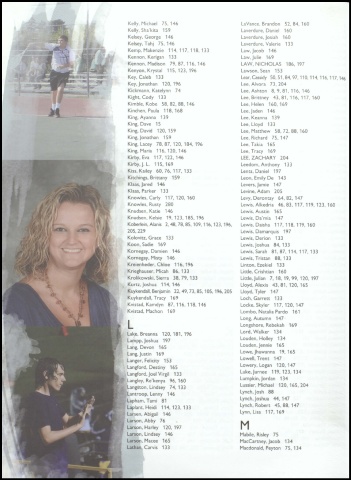 Kelly, Michael 75, 146
Kelly, Shirkita 159
Kelsey, George 146
Kelsey, Telly 75, 146
Kemp, Makenzie 114, 117, 118, 133
Kennon, Kerigan 133
Kennon, Madison 79, 87, 116, 146
Kenyon, Krystal 115, 123, 196
Key, Caleb 133
Key, Jonathan 120, 196
Kichmann, Katalynn 74
Kight, Cody 133
Kimble, Kobe 58, 82, 88, 146
Kinchen, Paula 118, 168
King, Ayonna 139
King, Dave 15
King, David 120, 159
King, Jonathan 159
King, Lacey 78, 87, 120, 184, 196
King, Maria 116, 120, 146
Kirby, Eva 117, 122, 146
Kirby, J. L. 110, 169
Kiss, Kailey 60, 76, 117, 133
Kitchings, Brittany 159
Klaas, Jared 146
Klaas, Parker 133
Knowles, Carly 117, 120, 160
Knowles, Rusty 208
Knutsen, Katie 146
Knutsen, Kelsie 19, 123, 185, 196
205, 229
Kolovitz, Grace 133
Koon, Sadie 169
Kornegay, Damien 146
Kornegay, Misty 146
Kreienheder, Chloe 116, 196
Krieghauser, Micah 86, 133
Krolikowski, Sierra 38, 79, 133
Kurtz, Joshua 114, 146
Kuykendall, Benjamin 22, 49, 73, 85, 105, 196, 205
Kuykendall, Tracy 169
Kvistad, Kamdyn 87, 116, 118, 146
Kvistad, Machon 169
L
Lake, Breanna 120, 181, 196
Lampp, Joshua 197
Lang, Devon 165
Lang, Justin 169
Langer, Felicity 153
Langford, Destiny 165
Langford, Joel Virgil 133
Langley, Ro'kenya 96, 160
Langston, Lindsey 74, 133
Lantroop, Lanny 146
Lapham, Tami 81
Laplant, Heidi 114, 123, 133
Larsen, Abigail 146
Larson, Abby 76
Larson, Harley 120, 197
Larson, Lindsey 146
Larson, Macee 165
Lathan, Carvis 133
LaVance, Brandon 52, 84, 160
Laverdure, Daniel 160
Laverdure, Josiah 160
Laverdure, Valerie 133
Law, Jacob 146
Law, Julie 169
LAW, NICHOLAS 186, 197
Lawson, Sean 153
Lee, Alexis 73, 204
Lee, Ashton 8, 9, 81, 116, 146
Lee, Brittany 43, 81, 116, 117, 160
Lee, Helen 160, 169
Lee, Jaden 146
Lee, Katrina 139
Lee, Lloyd 133
Lee, Matthew 58, 73, 88, 160
Lee, Richard 75, 147
Lee, Tobin 165
Lee, Tracy 169
LEE, ZACHARY 204
Leedom, Anthony 133
Lenta, Daniel 197
Leon, Emily De 143
Levens, Jamie 147
Levine, Adam 205
Levy, Demontay 64, 82, 147
Lewis, Albedria 46, 80, 117, 119, 123, 160
Lewis, Austin 165
Lewis, Da'mia 147
Lewis, Dasha 117, 118, 119, 160
Lewis, Damarquis 197
Lewis, Darian 133
Lewis, Joshua 84, 133
Lewis, Sarah 81, 87, 114, 117, 133
Lewis, Tristan 88, 133
Linton, Ezekial 133
Little, Cushion 160
Little, Julian 7, 18, 19, 99, 120, 197
Lloyd, Alexis 43, 81, 120, 165
Lloyd, Tyler 147
Loch, Garrett 133
Locke, Skylar 117, 120, 147
Lombo, Natalia Pardo 161
Long, Autumn 147
Longshore, Rebekah 169
Lord, Walker 134
Louden, Holley 134
Louden, Jennie 165
Lowell, Trent 147
Lowery, Logan 120, 147
Luke, Jarrea 119, 123, 134
Lumpkin, Jordan 134
Lussier, Michael 120, 165, 204
Lynch, Josh 88
Lynch, Joshua 44, 147
Lynch, Robert 45, 88, 147
Lynn, Lisa 117, 169
M
Mabole, Risley 75
MacCartey, Jacob 134
Macdonald, Payton 75, 134